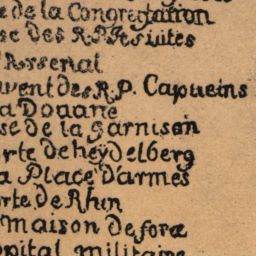 e de la Congregation
se des R.P. Jesuites
'Arsenal
uvent des R.P. Capucins
a Douane
se de la Garnison
orte de heydelberg
a Place D'armes
orte de Rhin
Maison de force
opital militaire